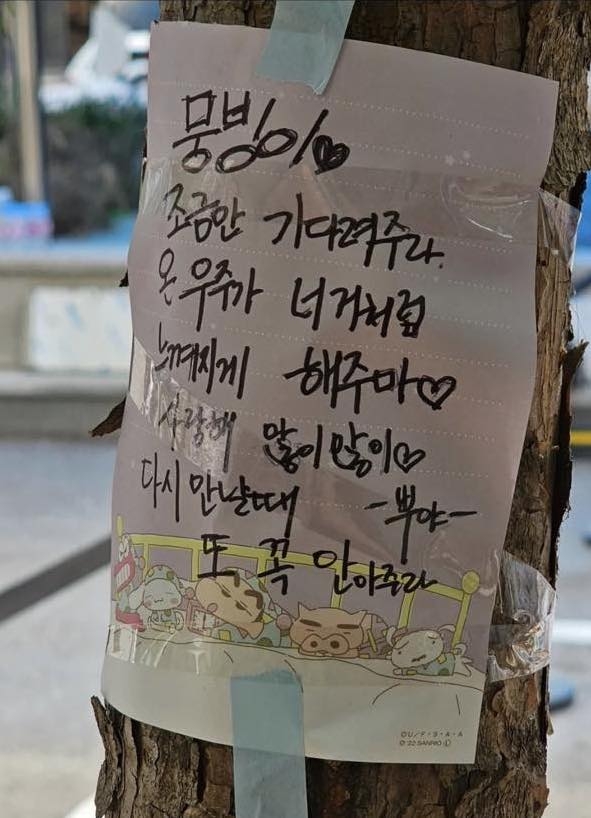 뭉빙이♡
조금만 기다려주라.
온 우주가 너거처럼
느껴지게 해주마♡
사랑해 많이많이♡
다시 만날때 -뿌야-
또 꼭 안아주라
©U/F・S・A・A
© '22 SANRIO Ⓛ